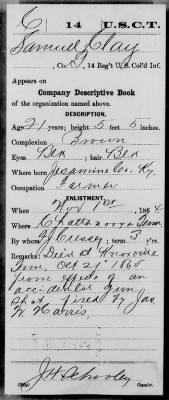 C 14 U.S.C.T.
Samuel Clay
, Co. D, 14 Reg't U.S. Col'd Inf.
Appears on
Company Descriptive Book
of the organization named above.
DESCRIPTION.
Age 21 years; height 5 feet 5 inches.
Complexion Brown
Eyes Blk; hair Blk
Where born Jessamine Co, Ky.
Occupation Farmer
ENLISTMENT.
When Nov 1st, 1864.
Where Chattanooga Tenn.
By whom ; term 3 y'rs.
Remarks: Died at Knoxville
Tenn, Oct 21" 1865
from effects of an
accidental gun
shot fired by Jas
W. Harris.
J H Schooley
Copyist.